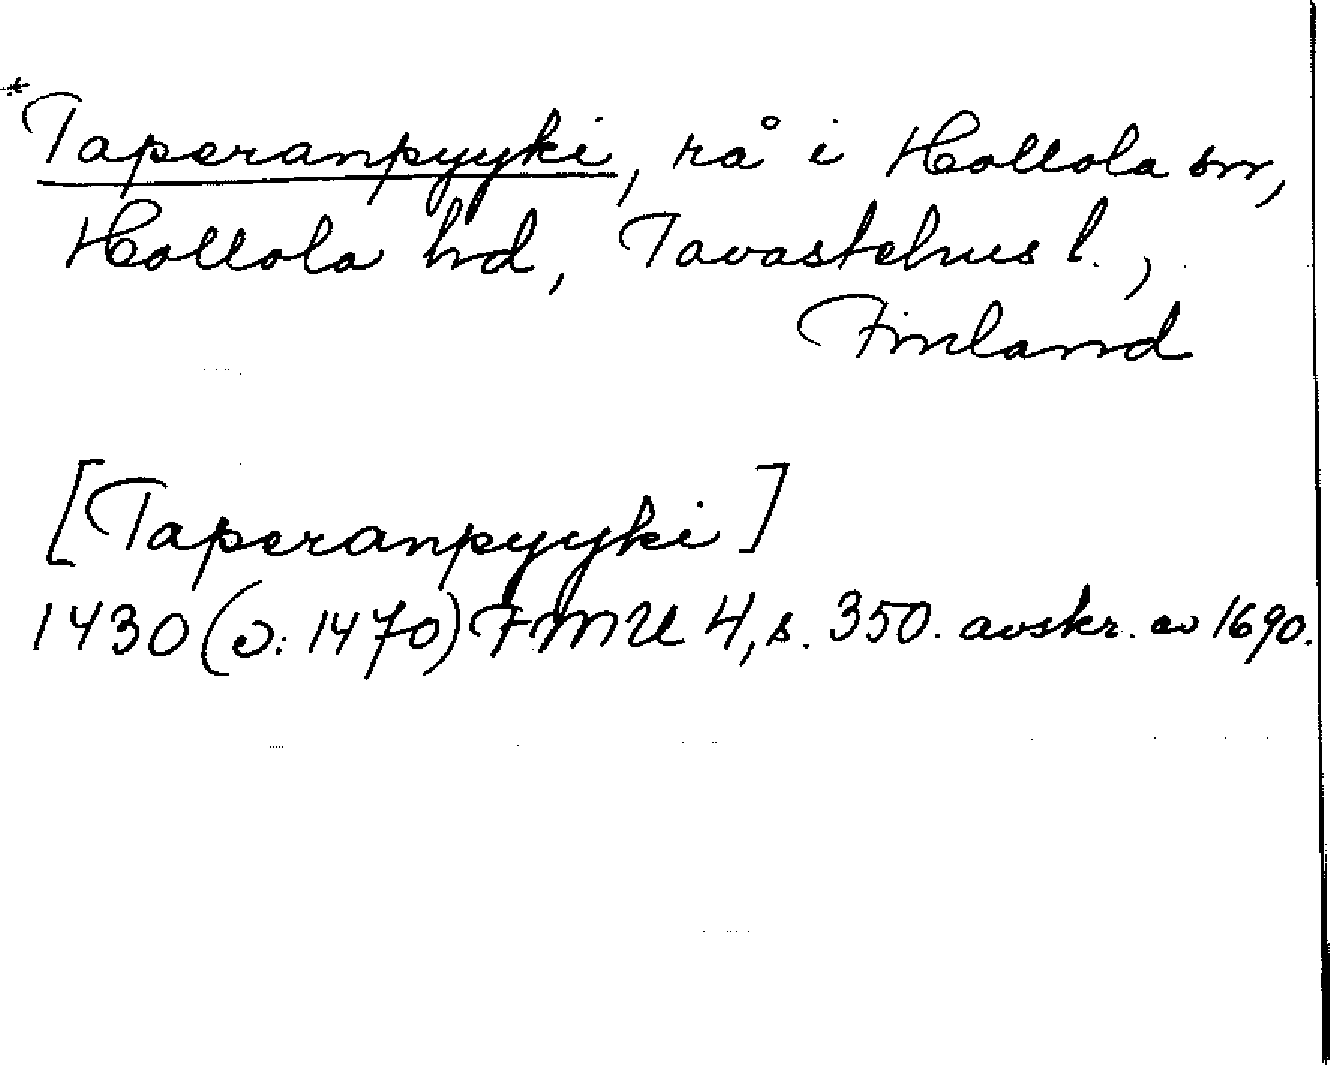 *Taperanpyyki, rå i Hollola sn,
Hollola hd, Tavastehus l.,
Finland
[Taperanpyyki]
1430 (ɔ: 1470) FMU 4, s. 350. avskr. av 1690.